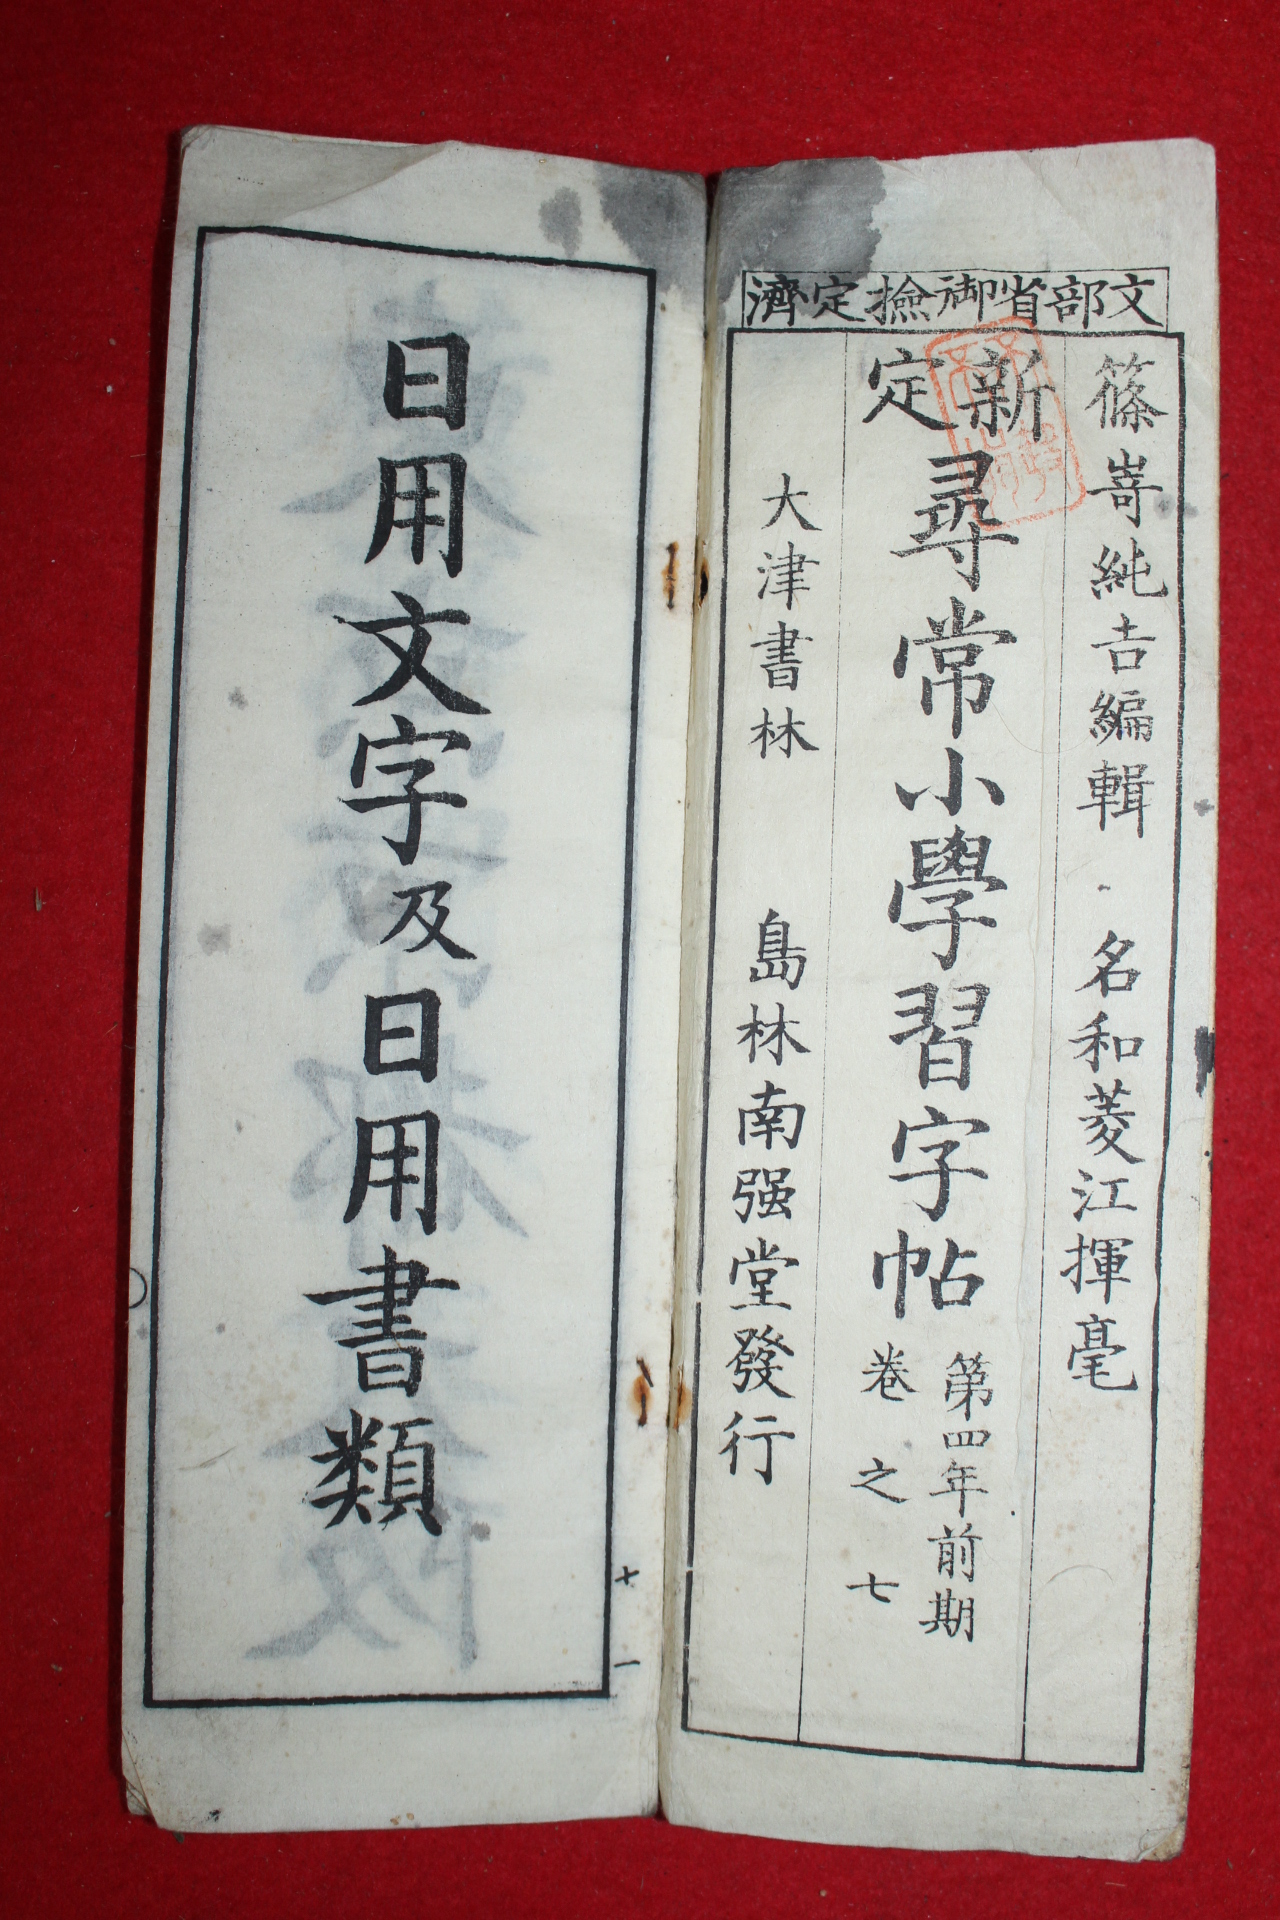 文部省御撿定濟
篠嵜純吉編輯 名和菱江揮毫
新定 尋常小學習字帖 第四年前期 卷之七
大津書林 島林南强堂發行
日用文字及日用書類
七 一